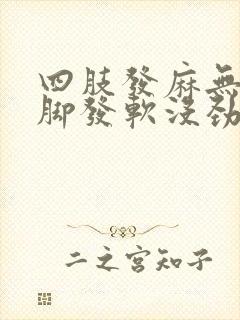 四肢發麻無
腳發軟沒勁
二之宮知子